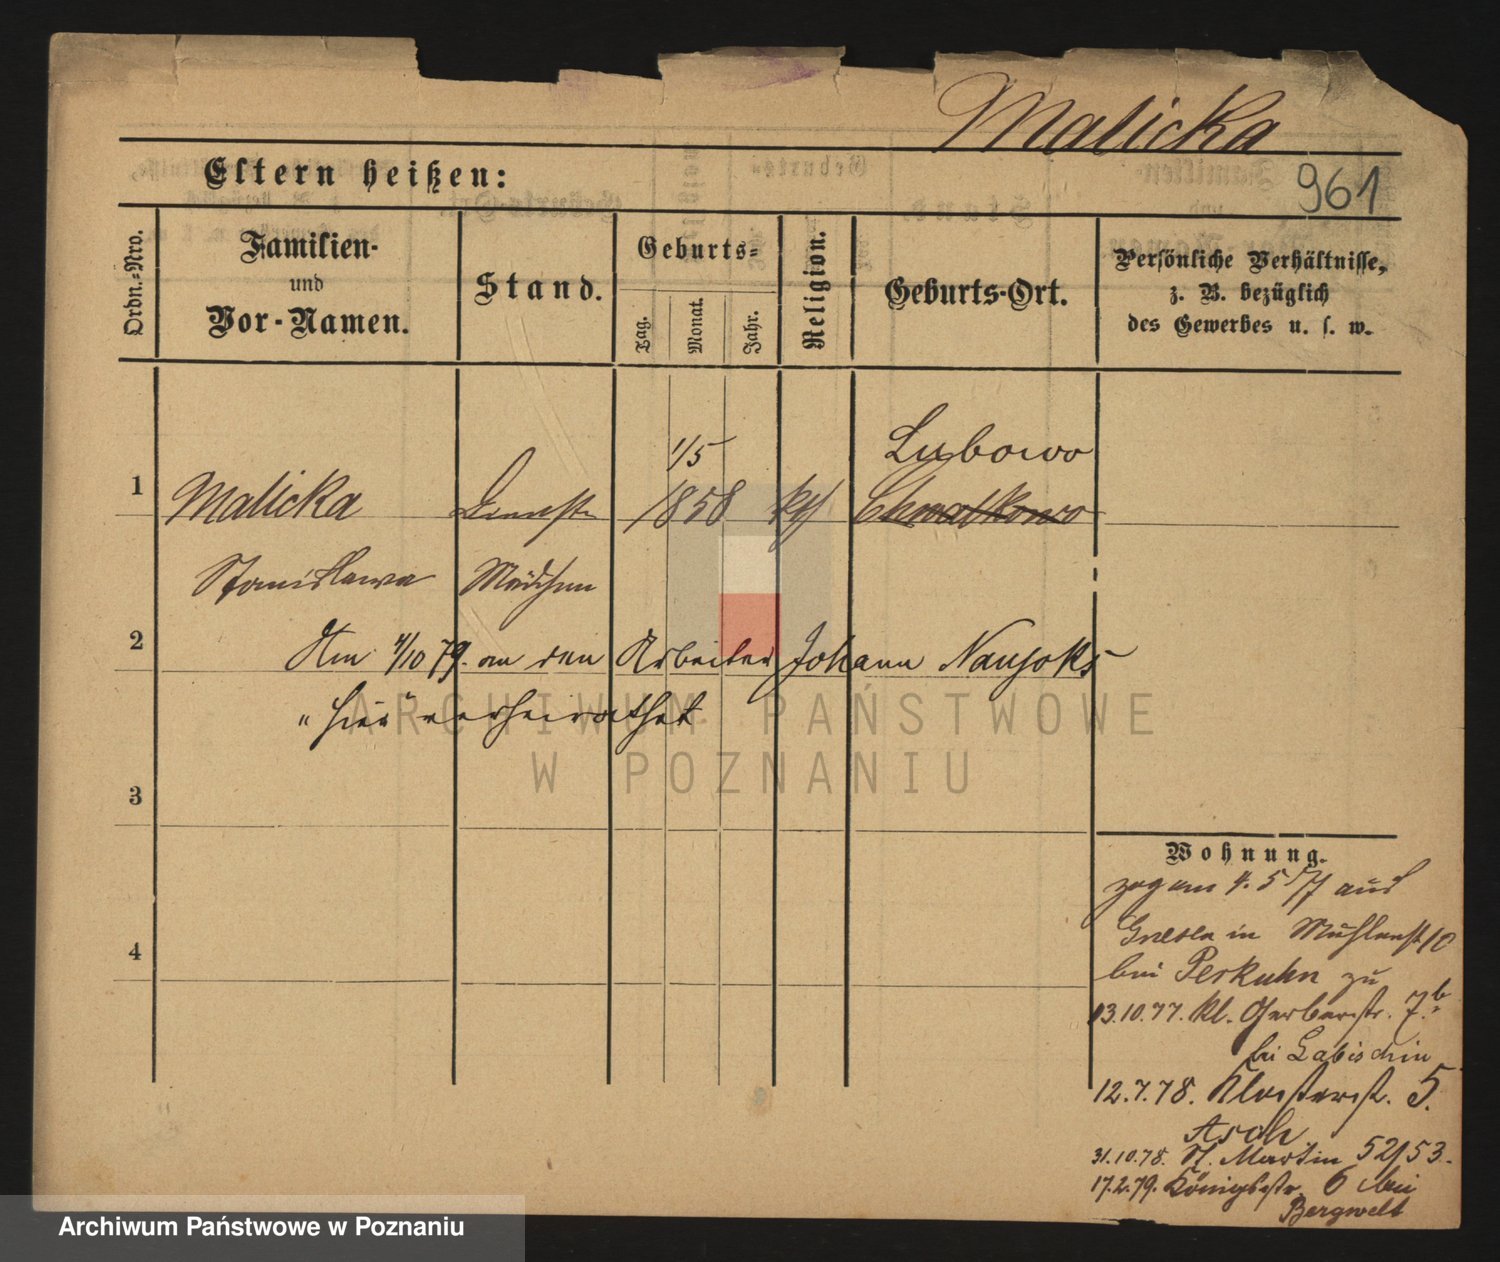 Malicka
961
Eltern heißen:
Ordn.-Nro.
Familien-
und
Vor-Namen.
Stand.
Geburts-
Tag.
Monat.
Jahr.
Religion.
Geburts-Ort.
Persönliche Verhältnisse,
z. B. bezüglich
des Gewerbes u. s. w.
1/5
Lubowo
1 Malicka Dienst 1858 kth Chmalkowo
Stanislawa Mädchen
2
Am 4/10 79. an den Arbeiter Johann Naujoks
"hier" verheirathet
3
4
Wohnung.
zog am 4. 5 77 aus
Gnesen in Mühlenst 10
bei Perkuhn zu
13.10.77. kl. Gerberstr. 7.b
bei Labischin
12.7.78. Klosterst. 5.
Asch
31.10.78. St. Martin 52/53.
17.2.79. Königsstr. 6 bei
Bergwelt
ARCHIWUM PAŃSTWOWE
W POZNANIU
Archiwum Państwowe w Poznaniu